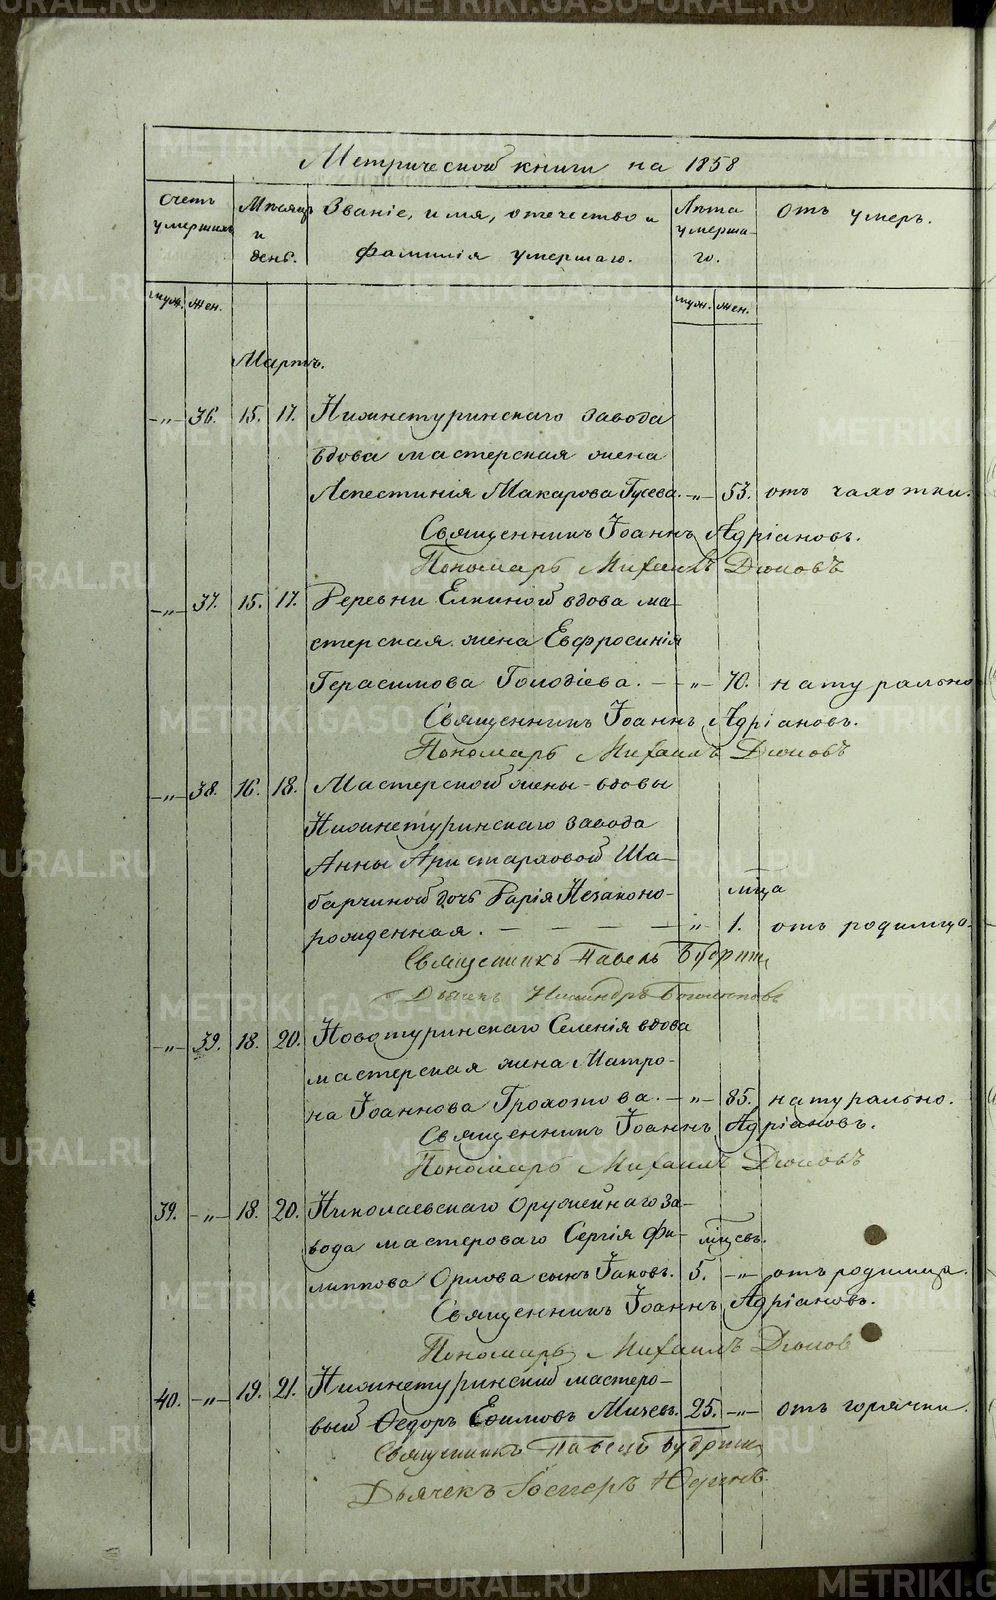 METRIKI.GASO-URAL.RU
Метрической книги на 1858
Счетъ умершихъ
Мѣсяцъ и день.
Званіе, имя, отечество и фамилія умершаго.
Лѣта умершаго.
Отъ чего умеръ.
муж. жен.
муж. жен.
Мартъ.
-"- 36. 15. 17. Нижнетуринскаго завода
вдова мастерская жена
Макарова Гусева. -"- 53. отъ чахотки.
Священникъ Іоаннъ Адріановъ.
Пономарь Михаилъ
-"- 37. 15. 17. Деревни Елкиной вдова ма-
стерская жена Евфросинія
Герасимова -"- 70. натурально
Священникъ Іоаннъ Адріановъ.
Пономарь Михаилъ
-"- 38. 16. 18. Мастерской жены-вдовы
Нижнетуринскаго завода
Анны Аристарховой Ша-
барчиной дочь Дарія Незаконо-
мѣсяца
рожденная. - - - - " 1. отъ родимца.
Священникъ Павелъ
Дьячекъ
-"- 39. 18. 20. Новотуринскаго Селенія вдова
мастерская жена Матро-
на Іоаннова Грохотова. -"- 85. натурально.
Священникъ Іоаннъ Адріановъ.
Пономарь Михаилъ
39. -"- 18. 20. Николаевскаго Оружейнаго за-
вода мастероваго Сергія Фи- мѣсцевъ.
липпова Орлова сынъ Іаковъ. 5. -"- отъ родимца.
Священникъ Іоаннъ Адріановъ.
Пономарь Михаилъ
40. -"- 19. 21. Нижнетуринскій мастеро-
вый Ѳедоръ Ефимовъ 25. -"- отъ горячки.
Священникъ Павелъ
Дьячекъ